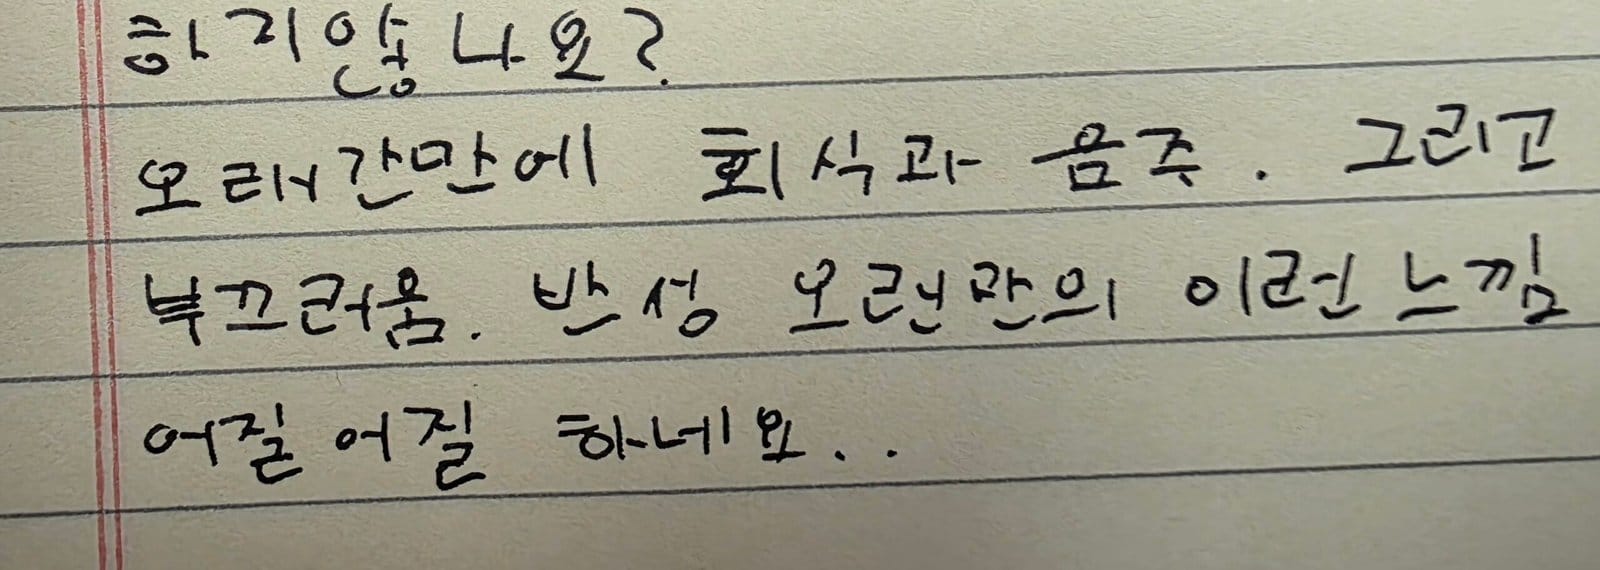 하지않나요?
오래간만에 회식과 음주. 그리고
부끄러움. 반성 오랜만의 이런 느낌
어질어질 하네요..